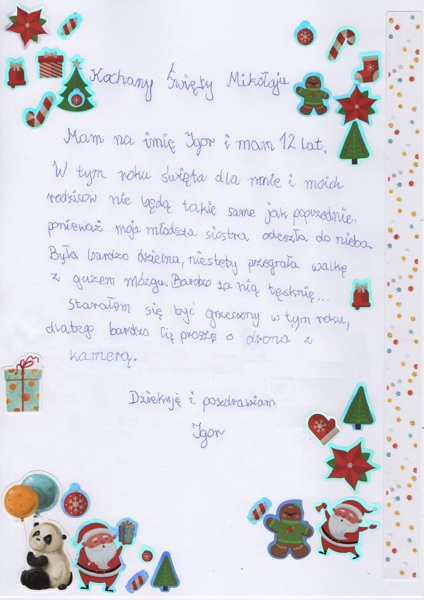 Kochany Święty Mikołaju
Mam na imię Igor i mam 12 lat.
W tym roku święta dla mnie i moich
rodziców nie będą takie same jak poprzednie,
ponieważ moja młodsza siostra odeszła do nieba.
Była bardzo dzielna, niestety przegrała walkę
z guzem mózgu. Bardzo za nią tęsknię...
starałem się być grzeczny w tym roku,
dlatego bardzo Cię proszę o drona z
kamerą.
Dziękuję i pozdrawiam
Igor